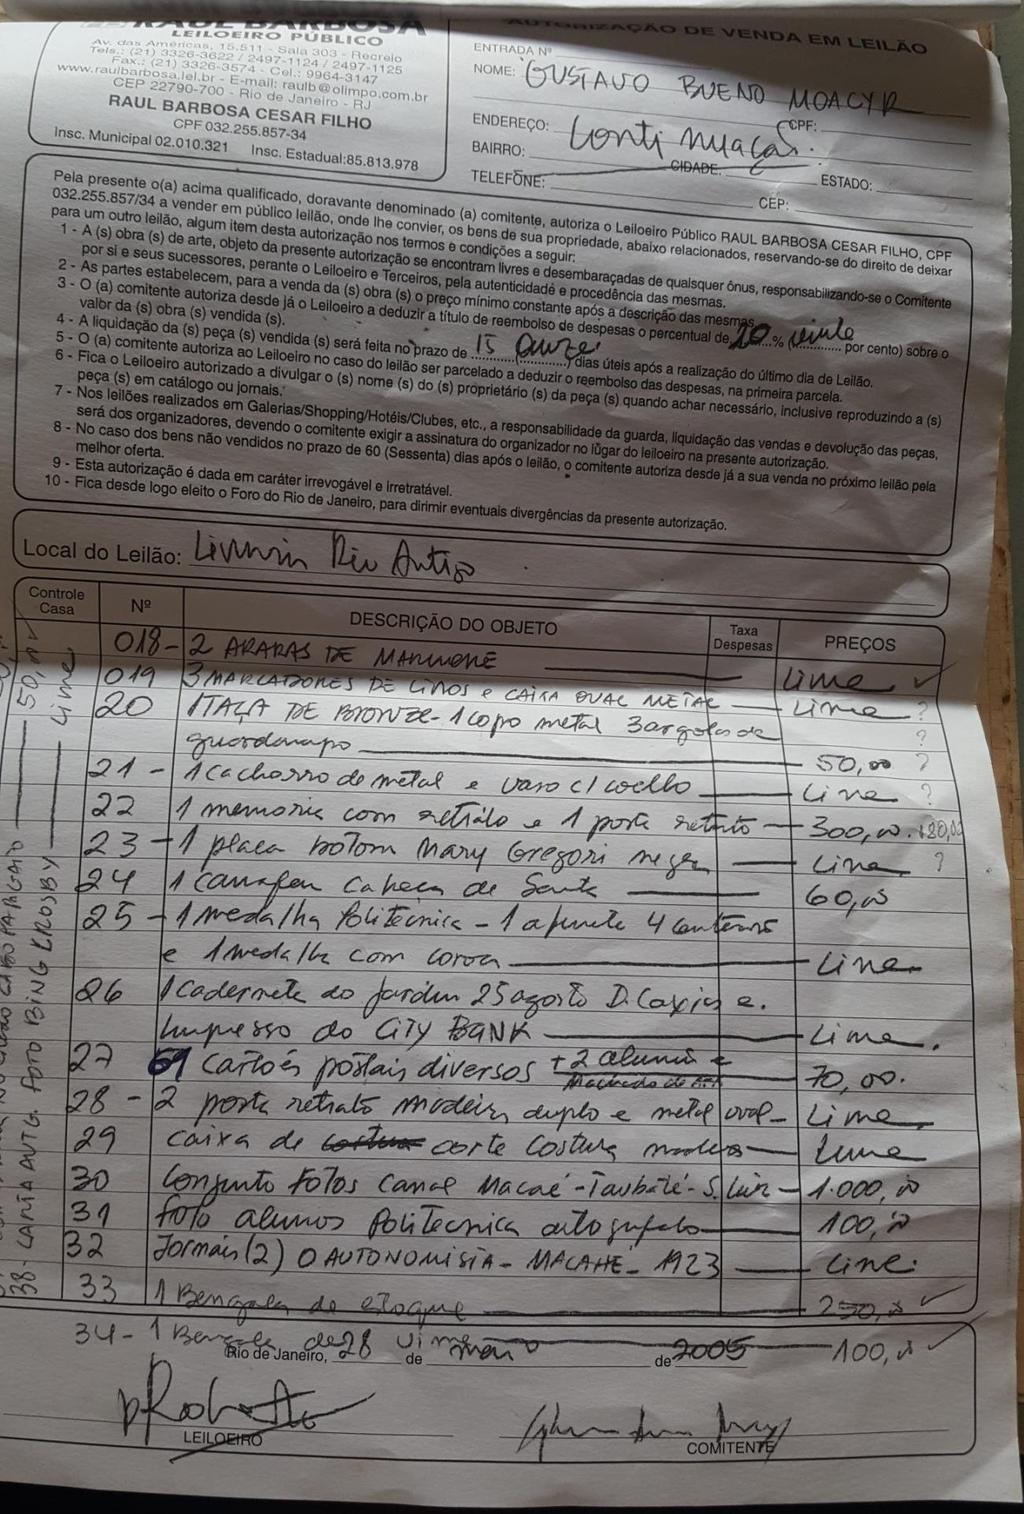 RAUL BARBOSA
LEILOEIRO PÚBLICO
Av. das Américas, 15.511 - Sala 303 - Recreio
Tels.: (21) 3326-3622 / 2497-1124 / 2497-1125
Fax.: (21) 3326-3574 - Cel.: 9964-3147
www.raulbarbosa.lel.br - E-mail: raulb@olimpo.com.br
CEP 22790-700 - Rio de Janeiro - RJ
RAUL BARBOSA CESAR FILHO
CPF 032.255.857-34
Insc. Municipal 02.010.321 Insc. Estadual:85.813.978
AUTORIZAÇÃO DE VENDA EM LEILÃO
ENTRADA Nº
NOME: GUSTAVO BUENO MOACYR
CPF:
ENDEREÇO: Continuação.
BAIRRO: CIDADE: ESTADO:
TELEFONE: CEP:
Pela presente o(a) acima qualificado, doravante denominado (a) comitente, autoriza o Leiloeiro Público RAUL BARBOSA CESAR FILHO, CPF
032.255.857/34 a vender em público leilão, onde lhe convier, os bens de sua propriedade, abaixo relacionados, reservando-se do direito de deixar
para um outro leilão, algum item desta autorização nos termos e condições a seguir:
1 - A (s) obra (s) de arte, objeto da presente autorização se encontram livres e desembaraçadas de qualsquer ônus, responsabilizando-se o Comitente
por si e seus sucessores, perante o Leiloeiro e Terceiros, pela autenticidade e procedência das mesmas.
2 - As partes estabelecem, para a venda da (s) obra (s) o preço mínimo constante após a descrição das mesmas.
3 - O (a) comitente autoriza desde já o Leiloeiro a deduzir a título de reembolso de despesas o percentual de 20 % (vinte por cento) sobre o
valor da (s) obra (s) vendida (s).
4 - A liquidação da (s) peça (s) vendida (s) será feita no prazo de 15 (quinze) dias úteis após a realização do último dia de Leilão.
5 - O (a) comitente autoriza ao Leiloeiro no caso do leilão ser parcelado a deduzir o reembolso das despesas, na primeira parcela.
6 - Fica o Leiloeiro autorizado a divulgar o (s) nome (s) do (s) proprietário (s) da peça (s) quando achar necessário, inclusive reproduzindo a (s)
peça (s) em catálogo ou jornais.
7 - Nos leilões realizados em Galerias/Shopping/Hotéis/Clubes, etc., a responsabilidade da guarda, liquidação das vendas e devolução das peças,
será dos organizadores, devendo o comitente exigir a assinatura do organizador no lugar do leiloeiro na presente autorização.
8 - No caso dos bens não vendidos no prazo de 60 (Sessenta) dias após o leilão, o comitente autoriza desde já a sua venda no próximo leilão pela
melhor oferta.
9 - Esta autorização é dada em caráter irrevogável e irretratável.
10 - Fica desde logo eleito o Foro do Rio de Janeiro, para dirimir eventuais divergências da presente autorização.
Local do Leilão: Livraria Rio Antigo
Controle Casa Nº DESCRIÇÃO DO OBJETO Taxa Despesas PREÇOS
018- 2 ARARAS DE MARMORE Livre ✓
019 3 MARCADORES DE LIVROS e CAIXA OVAL METAL Livre ?
20 1 TAÇA DE BRONZE - 1 copo metal 3 argolas de ?
guardanapo 50,00 ?
21 - 1 cachorro de metal e vaso c/ coelho Livre ?
22 1 memoria com retrato e 1 porta retrato 300,00. +20,00
23 - 1 placa botom Mary Gregori Livre ?
24 1 camafeu cabeca de Santa 60,00
25 - 1 medalha Politecnica - 1 4
e 1 medalha com coroa Livre
26 1 cadernete do Jardim 25 agosto D. Caxias e.
Impresso do CITY BANK Livre.
27 61 cartoes postais diversos + 2 e 70,00.
Machado de
28 - 2 porta retrato madeira duplo e metal oval - Livre
29 caixa de costura corte costura madeira Livre
30 Conjunto Fotos Canal Macaé - Taubaté - S. Luiz - 1.000,00
31 foto alunos Politecnica autografada 100,00
32 Jornais (2) O AUTONOMISTA - MACAHE - 1923 Livre.
33 1 Bengala de estoque 250,00 ✓
34 - 1 Bengala de 100,00 ✓
Rio de Janeiro, 28 de maio de 2005
LEILOEIRO
COMITENTE
50,00 ✓
38- CARTA AUTG. FOTO BING KROSBY Livre